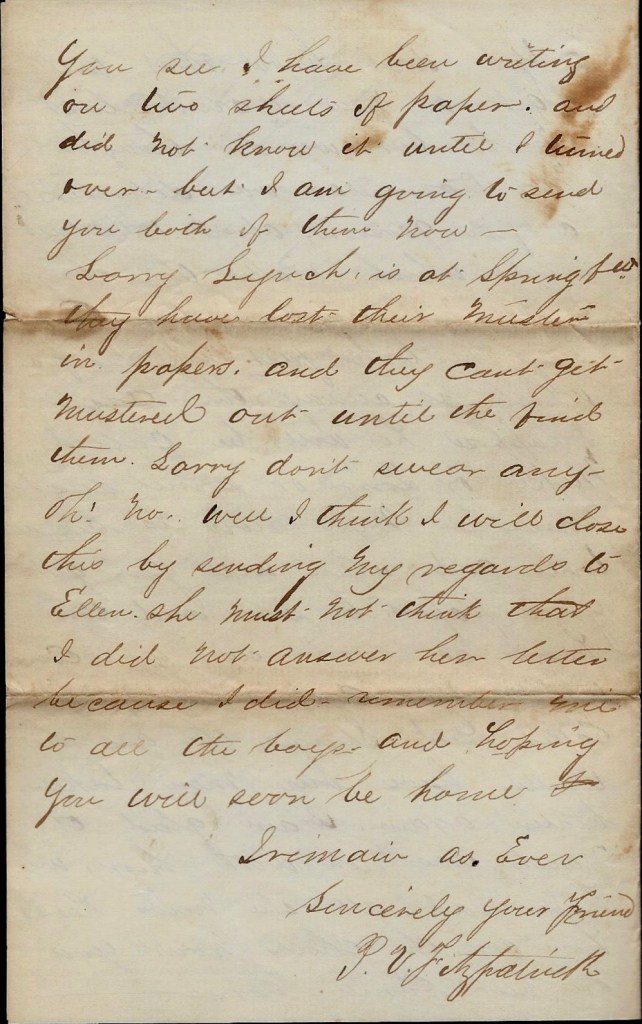 You see I have been writing
on two sheets of paper. and
did not know it until I turned
over - but I am going to send
you both of them now -
Larry Lynch, is at Springfd
they have lost their Muster
in papers. and they cant get
Mustered out until the find
them. Larry don't swear any-
Oh! No. well I think I will close
this by sending My regards to
Ellen. she must not think that
I did not answer her letter
because I did - remember me
to all the boys - and hoping
You will soon be home
I remain as. Ever
Sincerely Your Friend
P. V. Fitzpatrick